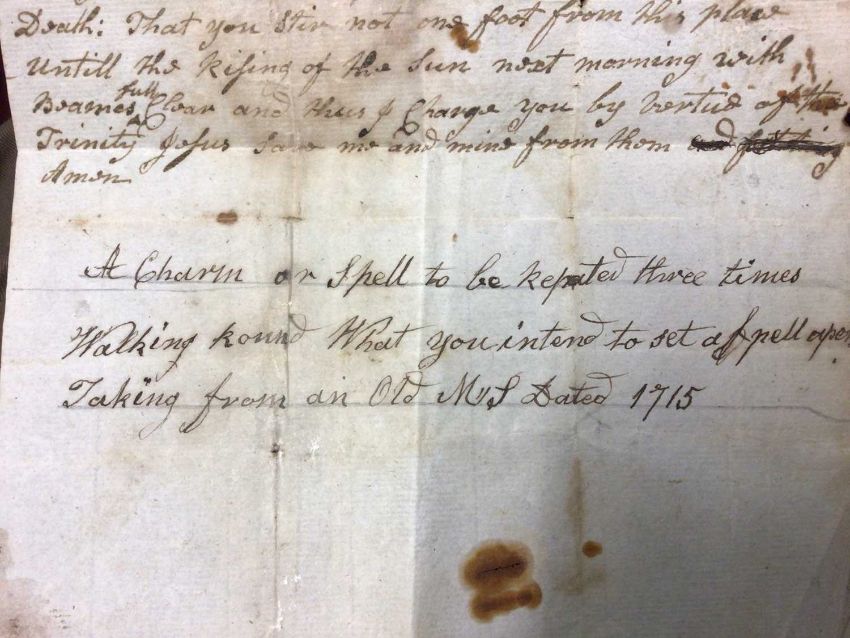 Death: That you Stir not one foot from this place
Untill the Rising of the Sun next morning with
Beames full Clear and thus I Charge you by Vertue of the
Trinity Jesus Save me and mine from them and
Amen
A Charm or Spell to be Repated three times
Walking Round What you intend to set a Spell apon
Taking from an Old MS Dated 1715